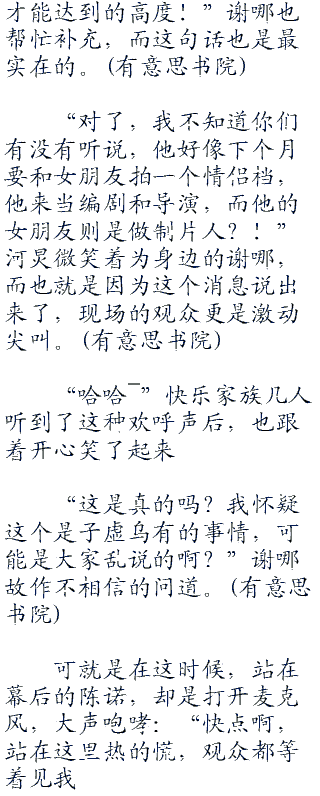 才能达到的高度！”谢哪也
帮忙补充，而这句话也是最
实在的。(有意思书院)
“对了，我不知道你们
有没有听说，他好像下个月
要和女朋友拍一个情侣档，
他来当编剧和导演，而他的
女朋友则是做制片人？！”
河炅微笑着为身边的谢哪，
而也就是因为这个消息说出
来了，现场的观众更是激动
尖叫。(有意思书院)
“哈哈¯”快乐家族几人
听到了这种欢呼声后，也跟
着开心笑了起来
“这是真的吗？我怀疑
这个是子虚乌有的事情，可
能是大家乱说的啊？”谢哪
故作不相信的问道。(有意思
书院)
可就是在这时候，站在
幕后的陈诺，却是打开麦克
风，大声咆哮：“快点啊，
站在这里热的慌，观众都等
着见我